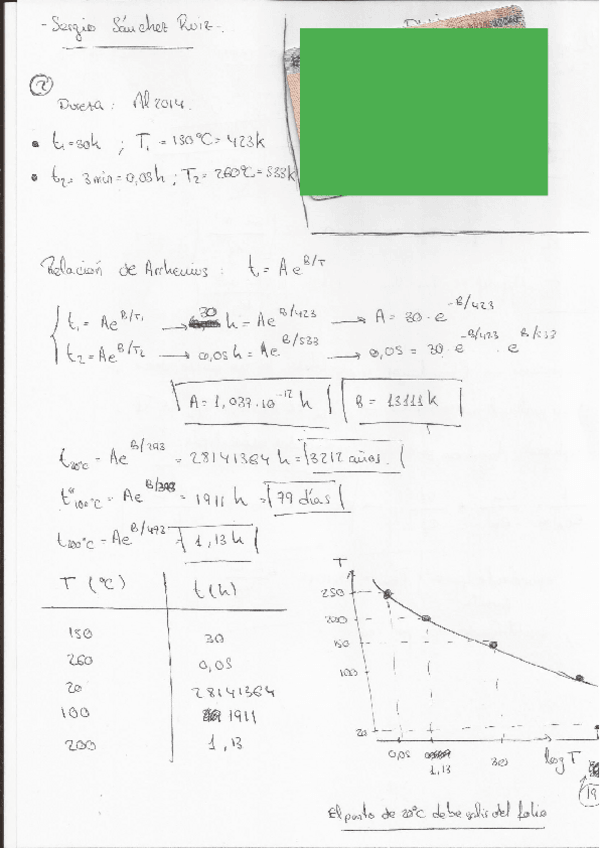 - Sergio Sánchez Ruiz -
2
Dureza: Al 2014.
• t₁ = 30h ; T₁ = 150°C = 423k
• t₂ = 3 min = 0,05h ; T₂ = 260°C = 533k
Relación de Arrhenius: t = Ae^B/T
t₁ = Ae^B/T₁ → 30 h = Ae^B/423 → A = 30 · e^-B/423
t₂ = Ae^B/T₂ → 0,05h = Ae^B/533 → 0,05 = 30 · e^-B/423 · e^B/533
A = 1,037·10^-12 h B = 13111 k
t20°C = Ae^B/293 = 28141364 h = 3212 años.
t100°C = Ae = 1911 h = 79 días
t200°C = Ae^B/473 = 1,13 h
T (°C) t (h)
150 30
260 0,05
20 28141364
100 1911
200 1,13
T
250
200
150
100
20
0,05 1,13 30 log T
19
El punto de 20°C debe salir del folio